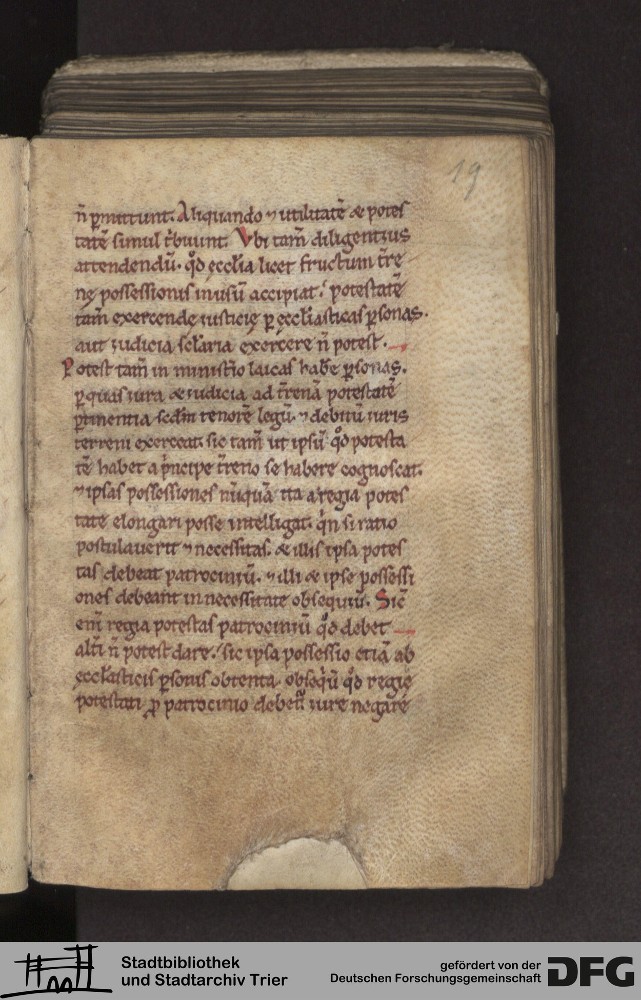 19
n̄ ꝑmittunt. Aliquando ⁊ utilitatē & potes
tatē simul t̄buunt. Vbi tam̄ diligentius
attendendū. qd̊ eccl̄ia licet fructum t̄re
nę possessionis in usū accipiat. potestatē
tam̄ exercendę iusticię ꝑ ęccl̄iasticas ꝑsonas.
aut iudicia scl̄aria exercere n̄ potest.
Potest tam̄ in minist̄io laicas hab̄e ꝑsonas.
ꝑ quas iura & iudicia ad t̄renā potestatē
ꝑtinentia scdm̄ tenorē legū. ⁊ debitū iuris
terreni exerceat. sic tam̄ ut ipsū qd̊ potesta
tē habet a pͥncipe t̄reno se habere cognoscat.
⁊ ipsas possessiones nūquā ita a regia potes
tate elongari posse intelligat. qͥn si ratio
postulauerit ⁊ necessitas. & illis ipsa potes
tas debeat patrociniū. ⁊ illi & ipsę possessi
ones debeant in necessitate obsequiū. Sic̄
eni᷒ regia potestas patrociniū qd̊ debet
alt̄i n̄ potest dare. sic ipsa possessio etiā ab
ęccl̄iasticis ꝑsonis obtenta. obseqͥū qd̊ regię
potestati ꝓ patrocinio debet᷑ iure negare
Stadtbibliothek
und Stadtarchiv Trier
gefördert von der
Deutschen Forschungsgemeinschaft
DFG